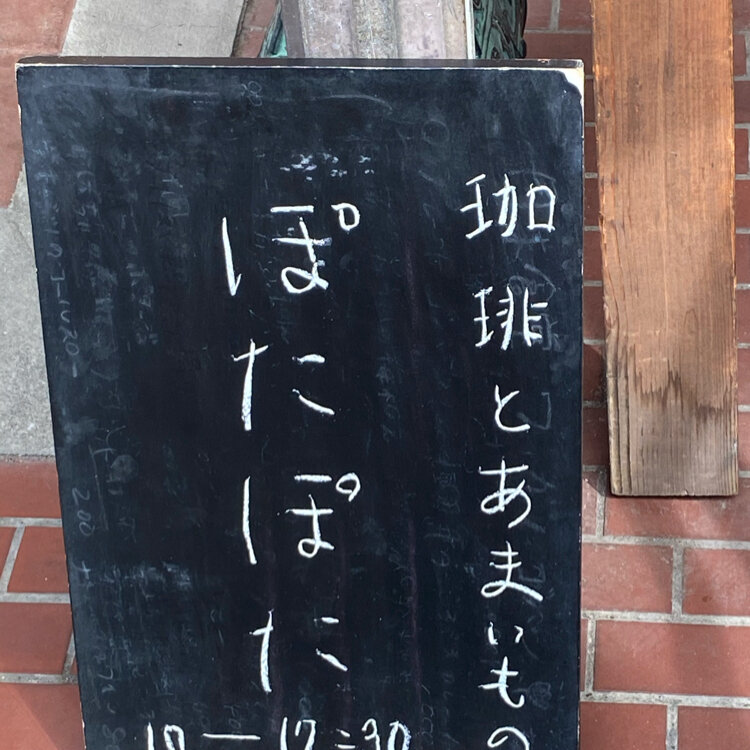 珈琲とあまいもの
ぽたぽた